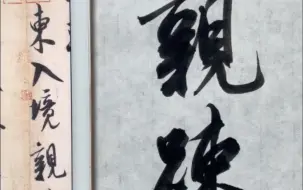 東入境親
親踈